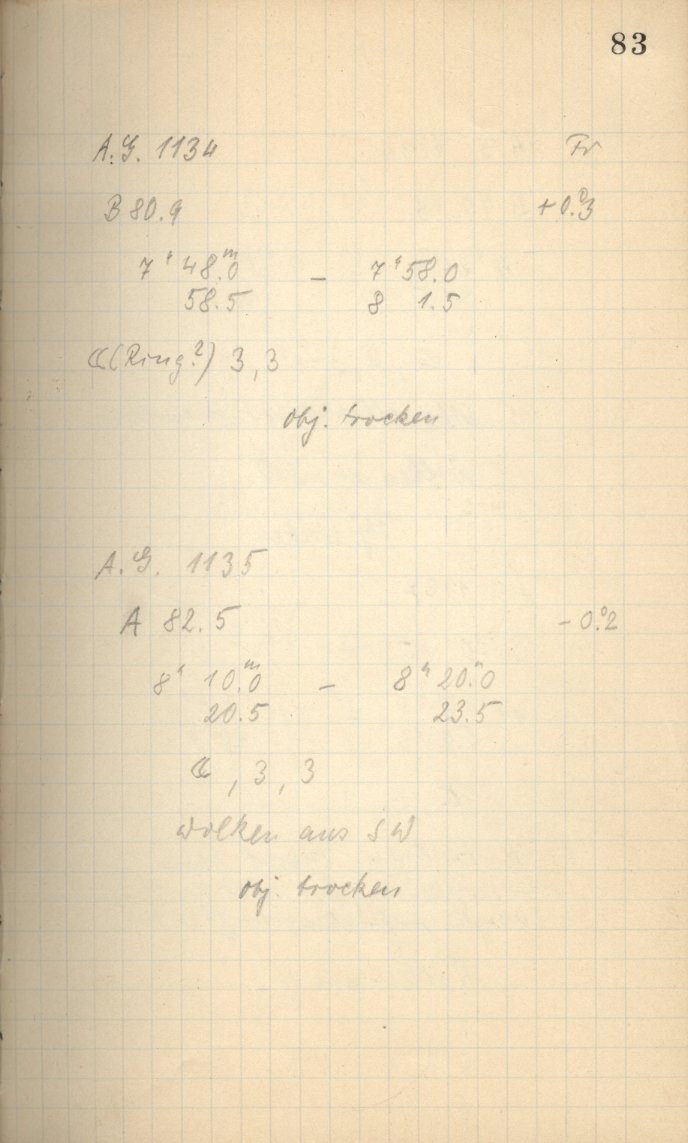 83
A.G. 1134 Fr
B 80.9 +0.°3
7ʰ 48.ᵐ0 – 7ʰ 58.0
58.5 8 1.5
☾ (Ring?) 3,3
Obj. trocken
A.G. 1135
A 82.5 -0.°2
8ʰ 10.ᵐ0 – 8ʰ 20.ᵐ0
20.5 23.5
☾, 3, 3
Wolken aus SW
Obj. trocken